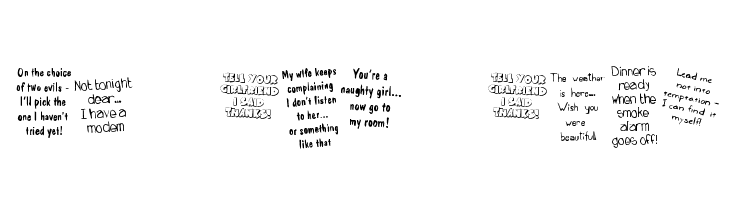 On the choice
of two evils -
I'll pick the
one I haven't
tried yet!
Not tonight
dear...
I have a
modem
TELL YOUR
GIRLFRIEND
I SAID
THANKS!
My wife keeps
complaining
I don't listen
to her...
or something
like that
You're a
naughty girl...
now go to
my room!
TELL YOUR
GIRLFRIEND
I SAID
THANKS!
The weather
is here...
Wish you
were
beautiful!
Dinner is
ready
when the
smoke
alarm
goes off!
Lead me
not into
temptation -
I can find it
myself!